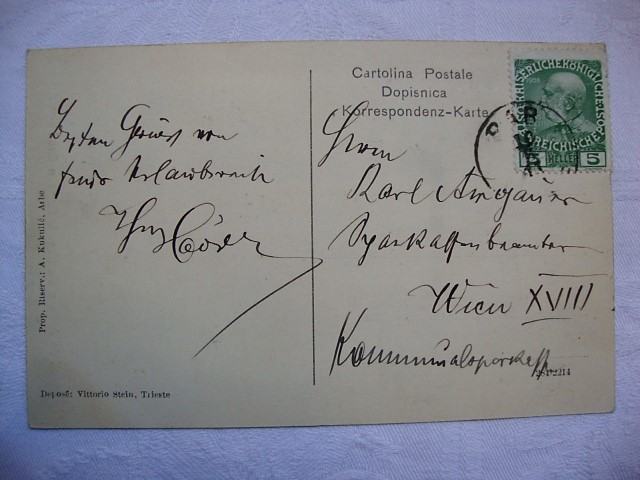 Cartolina Postale
Dopisnica
Korrespondenz-Karte
KAISERLICHE KÖNIGLICHE
ÖSTERREICHISCHE
1908
5 HELLER 5
Besten Gruß von
Urlaubsreise
Herrn
Karl Amgauer
Sparkassenbeamter
Wien XVIII
Kommunalsparkasse
Prop. Riserv.: A. Kukulić, Arbe
Deposé: Vittorio Stein, Trieste